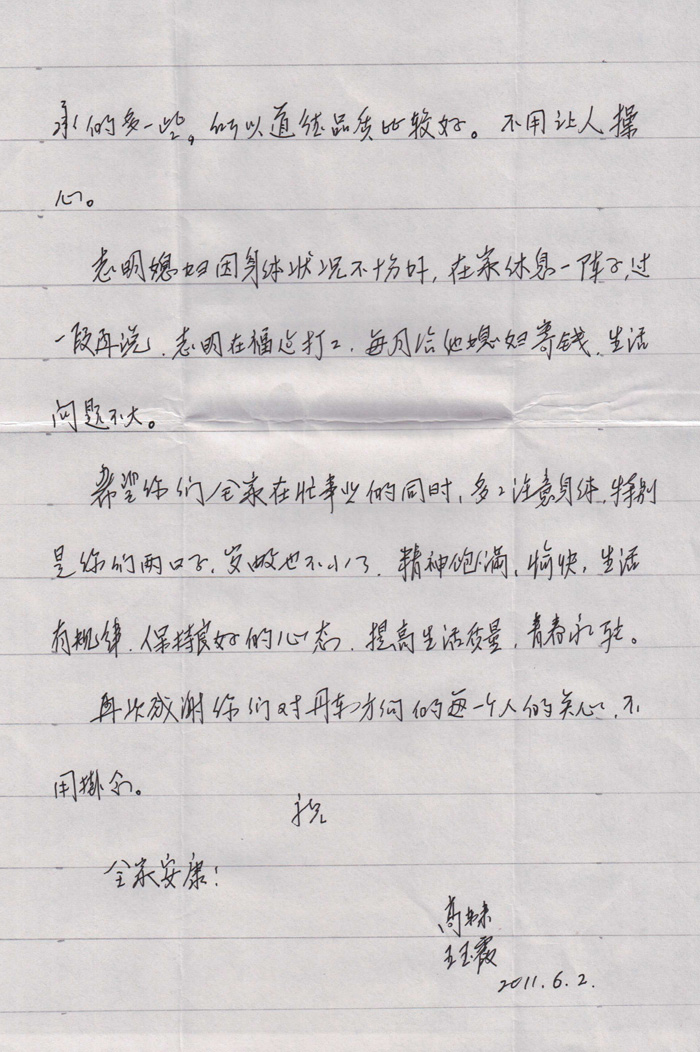 承的多一些，所以道德品质比较好。不用让人操
心。
志明媳妇因身体状况不十分好，在家休息一阵子，过
一段再说，志明在福建打工，每月给他媳妇寄钱，生活
问题不大。
希望你们全家在忙事业的同时，多多注意身体，特别
是你们两口子，岁数也不小了，精神饱满，愉快，生活
有规律，保持良好的心态，提高生活质量，青春永驻。
再次感谢你们对丹东方向的每一个人的关心，不
用挂念。
祝
全家安康！
王玉霞
2011.6.2.